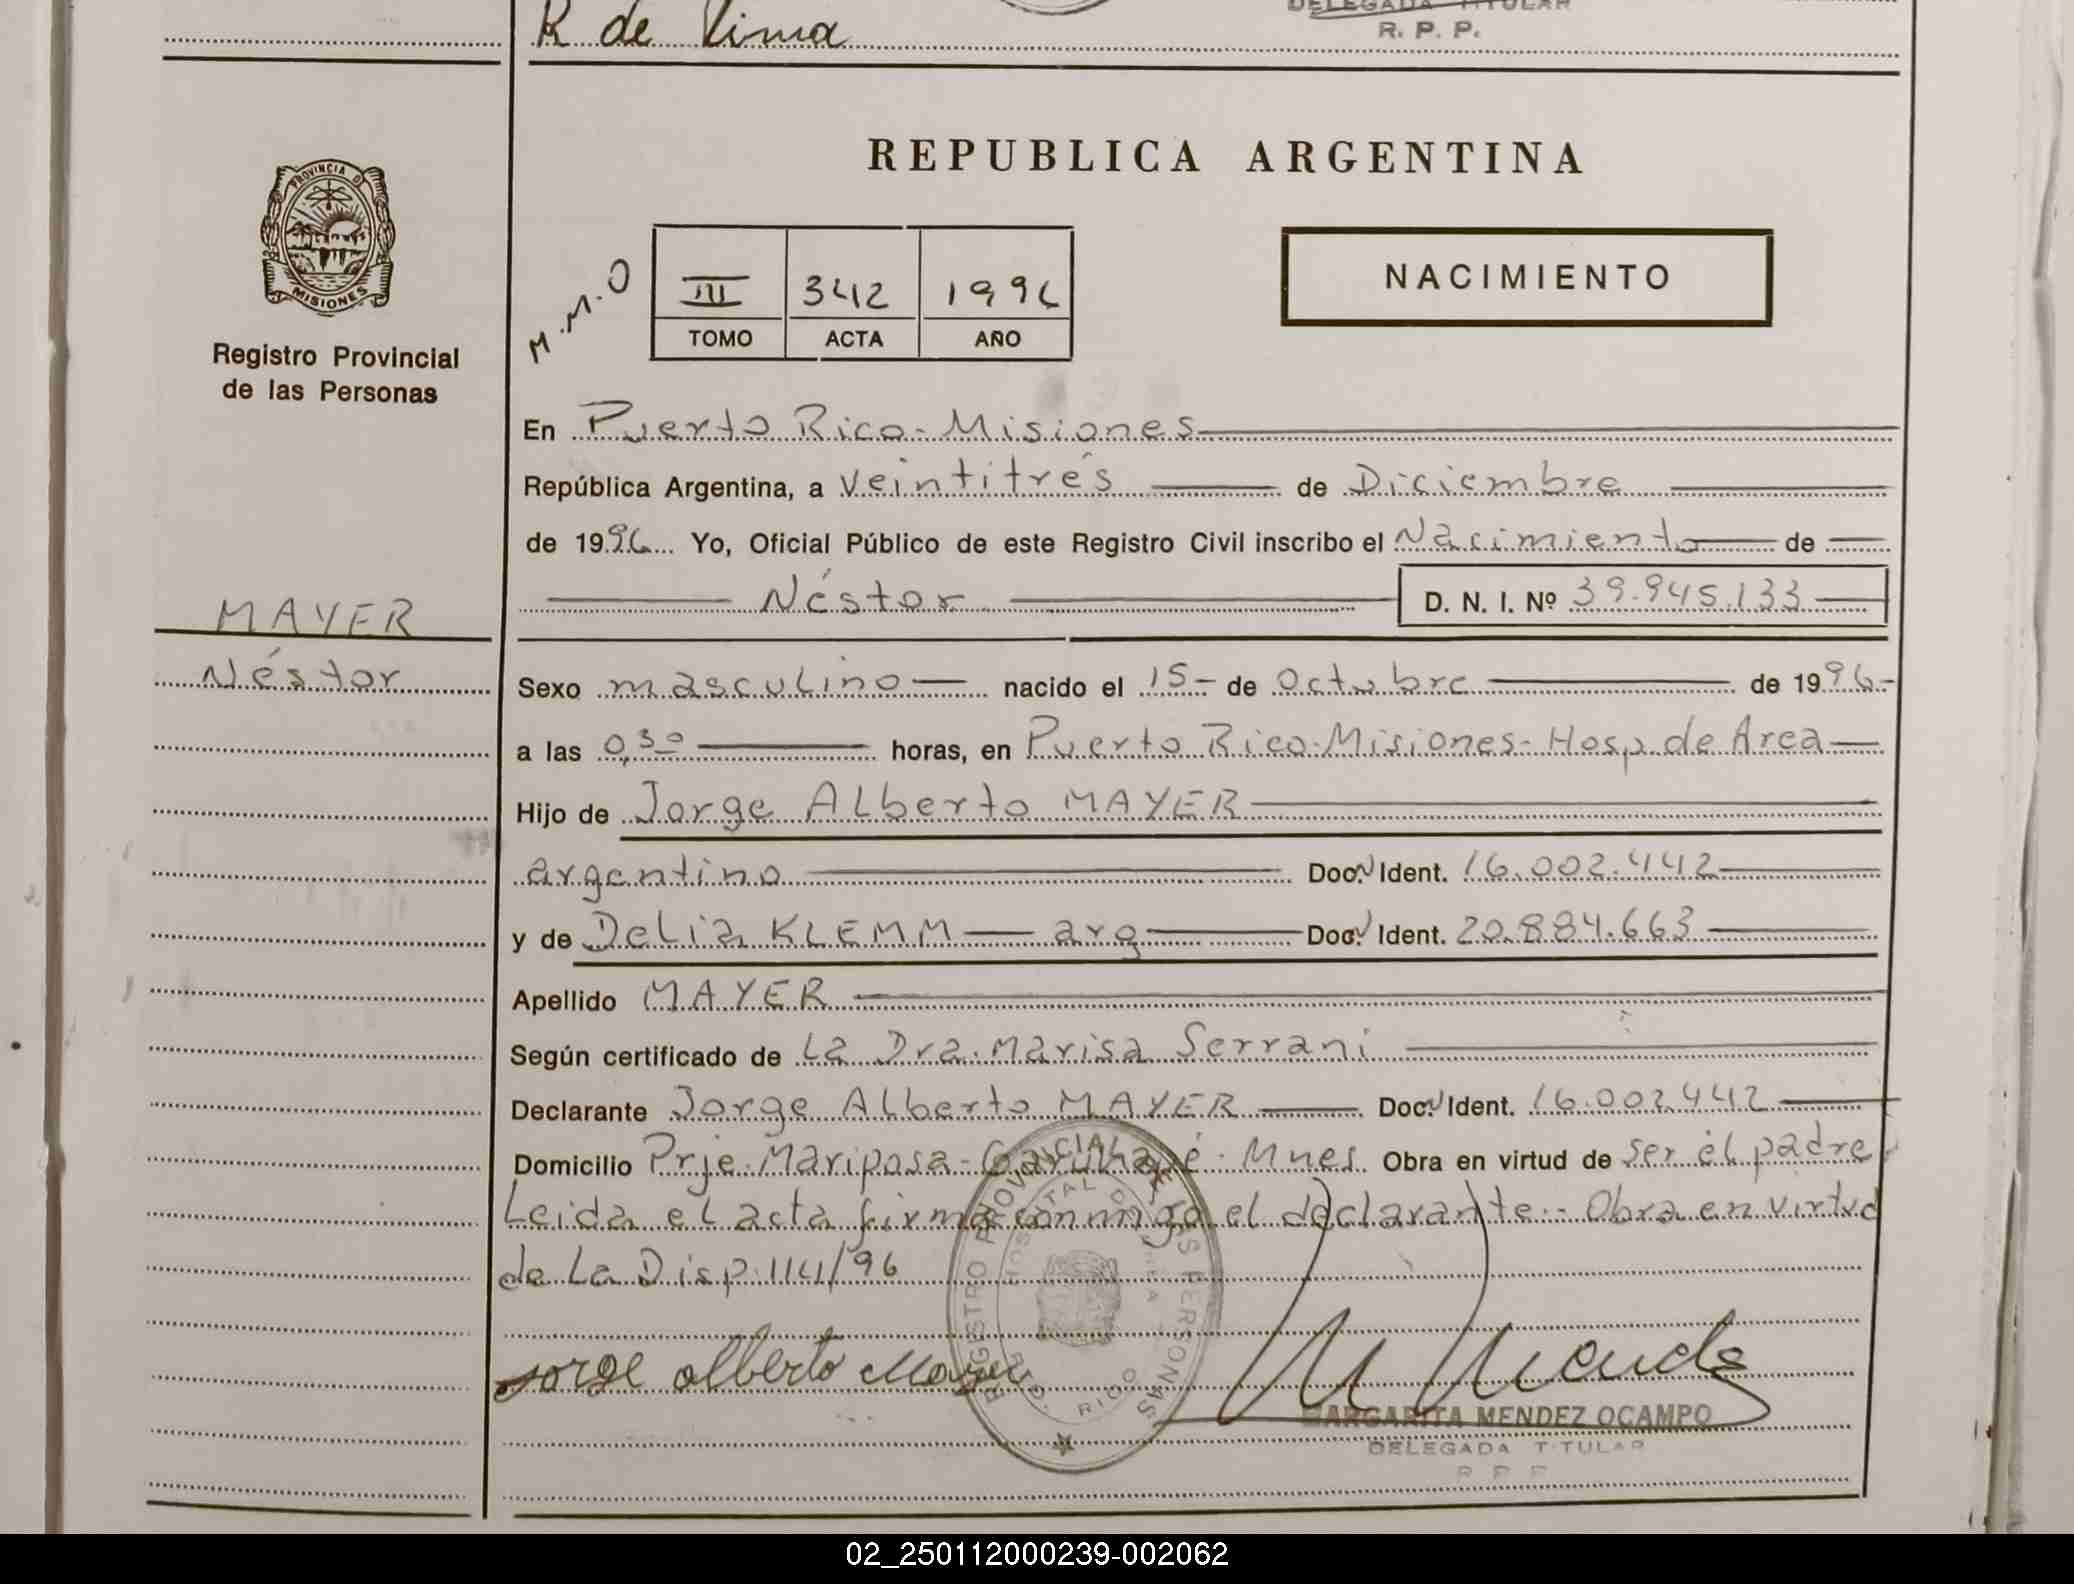 R de Lima
DELEGADA TITULAR
R. P. P.
PROVINCIA DE
MISIONES
Registro Provincial
de las Personas
REPUBLICA ARGENTINA
M.M.O
III 342 1996
TOMO ACTA AÑO
NACIMIENTO
En Puerto Rico - Misiones
República Argentina, a Veintitrés de Diciembre
de 1996 Yo, Oficial Público de este Registro Civil inscribo el Nacimiento de
Néstor D. N. I. Nº 39.945.133
MAYER
Néstor
Sexo masculino nacido el 15 - de Octubre de 1996 -
a las 0,30 horas, en Puerto Rico - Misiones - Hosp. de Area
Hijo de Jorge Alberto MAYER
argentino Doc. Ident. 16.002.442
y de Delia KLEMM arg Doc. Ident. 20.884.663
Apellido MAYER
Según certificado de La Dra. Marisa Serrani
Declarante Jorge Alberto MAYER Doc. Ident. 16.002.442
Domicilio Prje. Mariposa - Garuhapé - Mnes. Obra en virtud de ser el padre.
Leida el acta firma conmigo el declarante - Obra en virtud
de La Disp. 114/96
Jorge Alberto Mayer
REGISTRO PROVINCIAL DE LAS PERSONAS
HOSPITAL DE AREA
PTO. RICO
M Mendez
MARGARITA MENDEZ OCAMPO
DELEGADA TITULAR
R P P
02_250112000239-002062